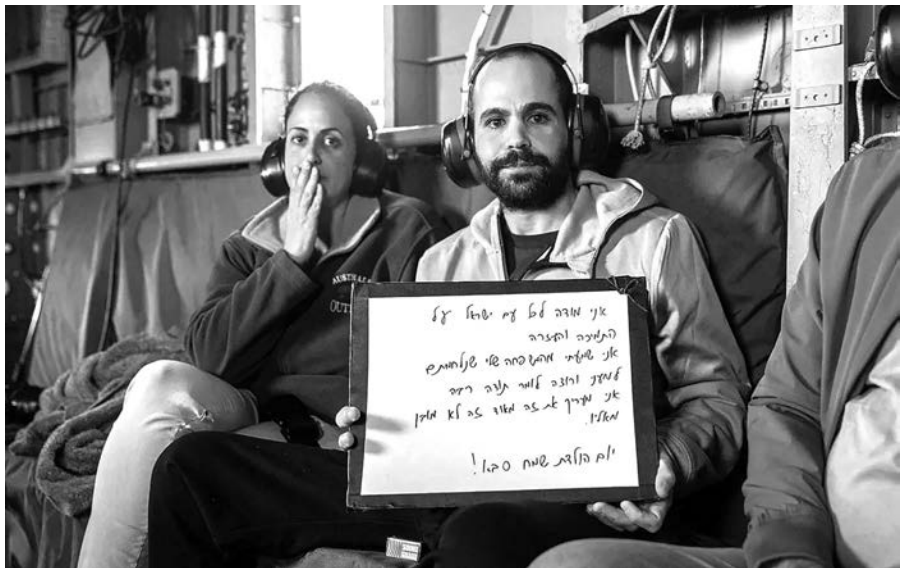 אני מודה לכל עם ישראל על
התמיכה והעזרה
אני שמעתי מהמשפחה שלי שנלחמתם
למעני ורוצה לומר תודה רבה
אני מעריך את זה מאוד זה לא מובן
מאליו.
יום הולדת שמח סבא!
AUSTRALIA
OUT